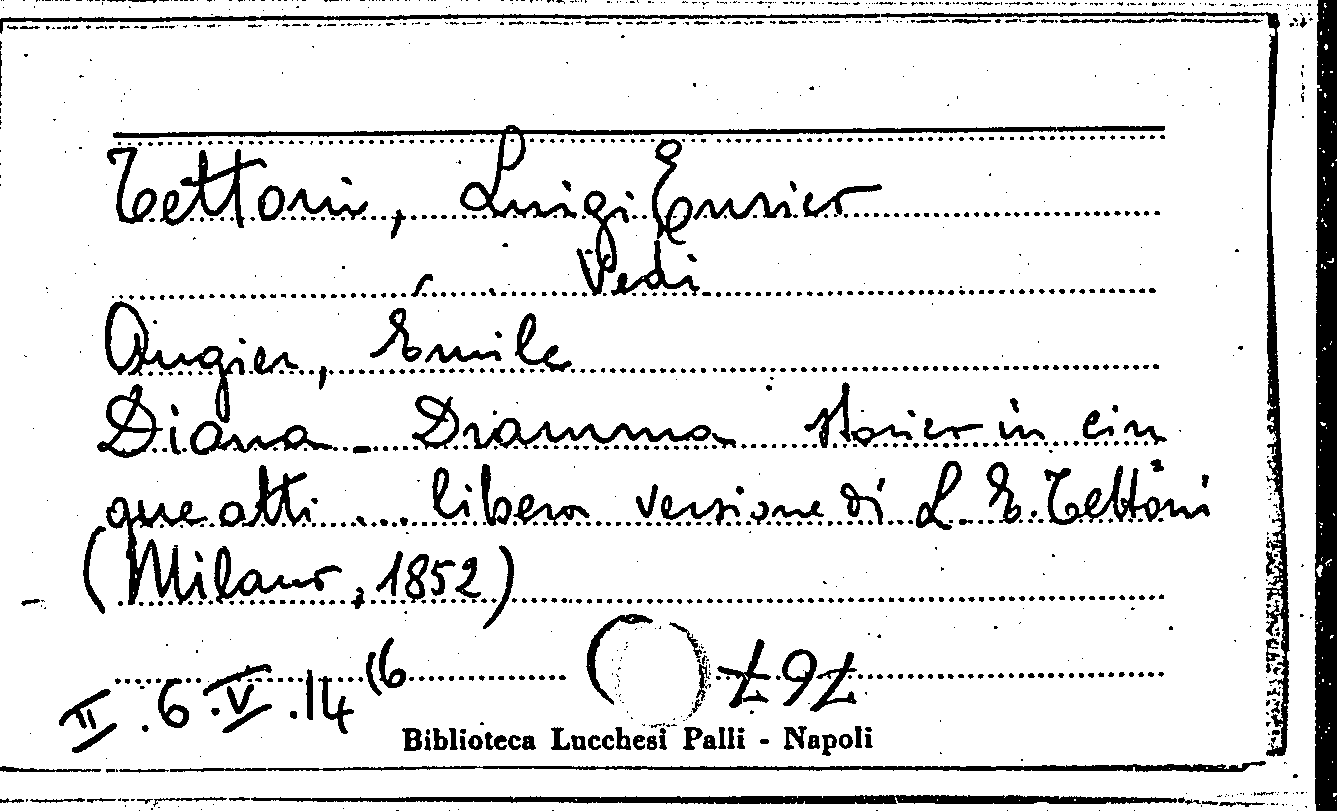 Tettoni, Luigi Enrico
Vedi
Augier, Emile
Diana - Dramma storico in cin
que atti ... libera versione di L. E. Tettoni
(Milano, 1852)
II.6.V.14(6
( 767
Biblioteca Lucchesi Palli - Napoli